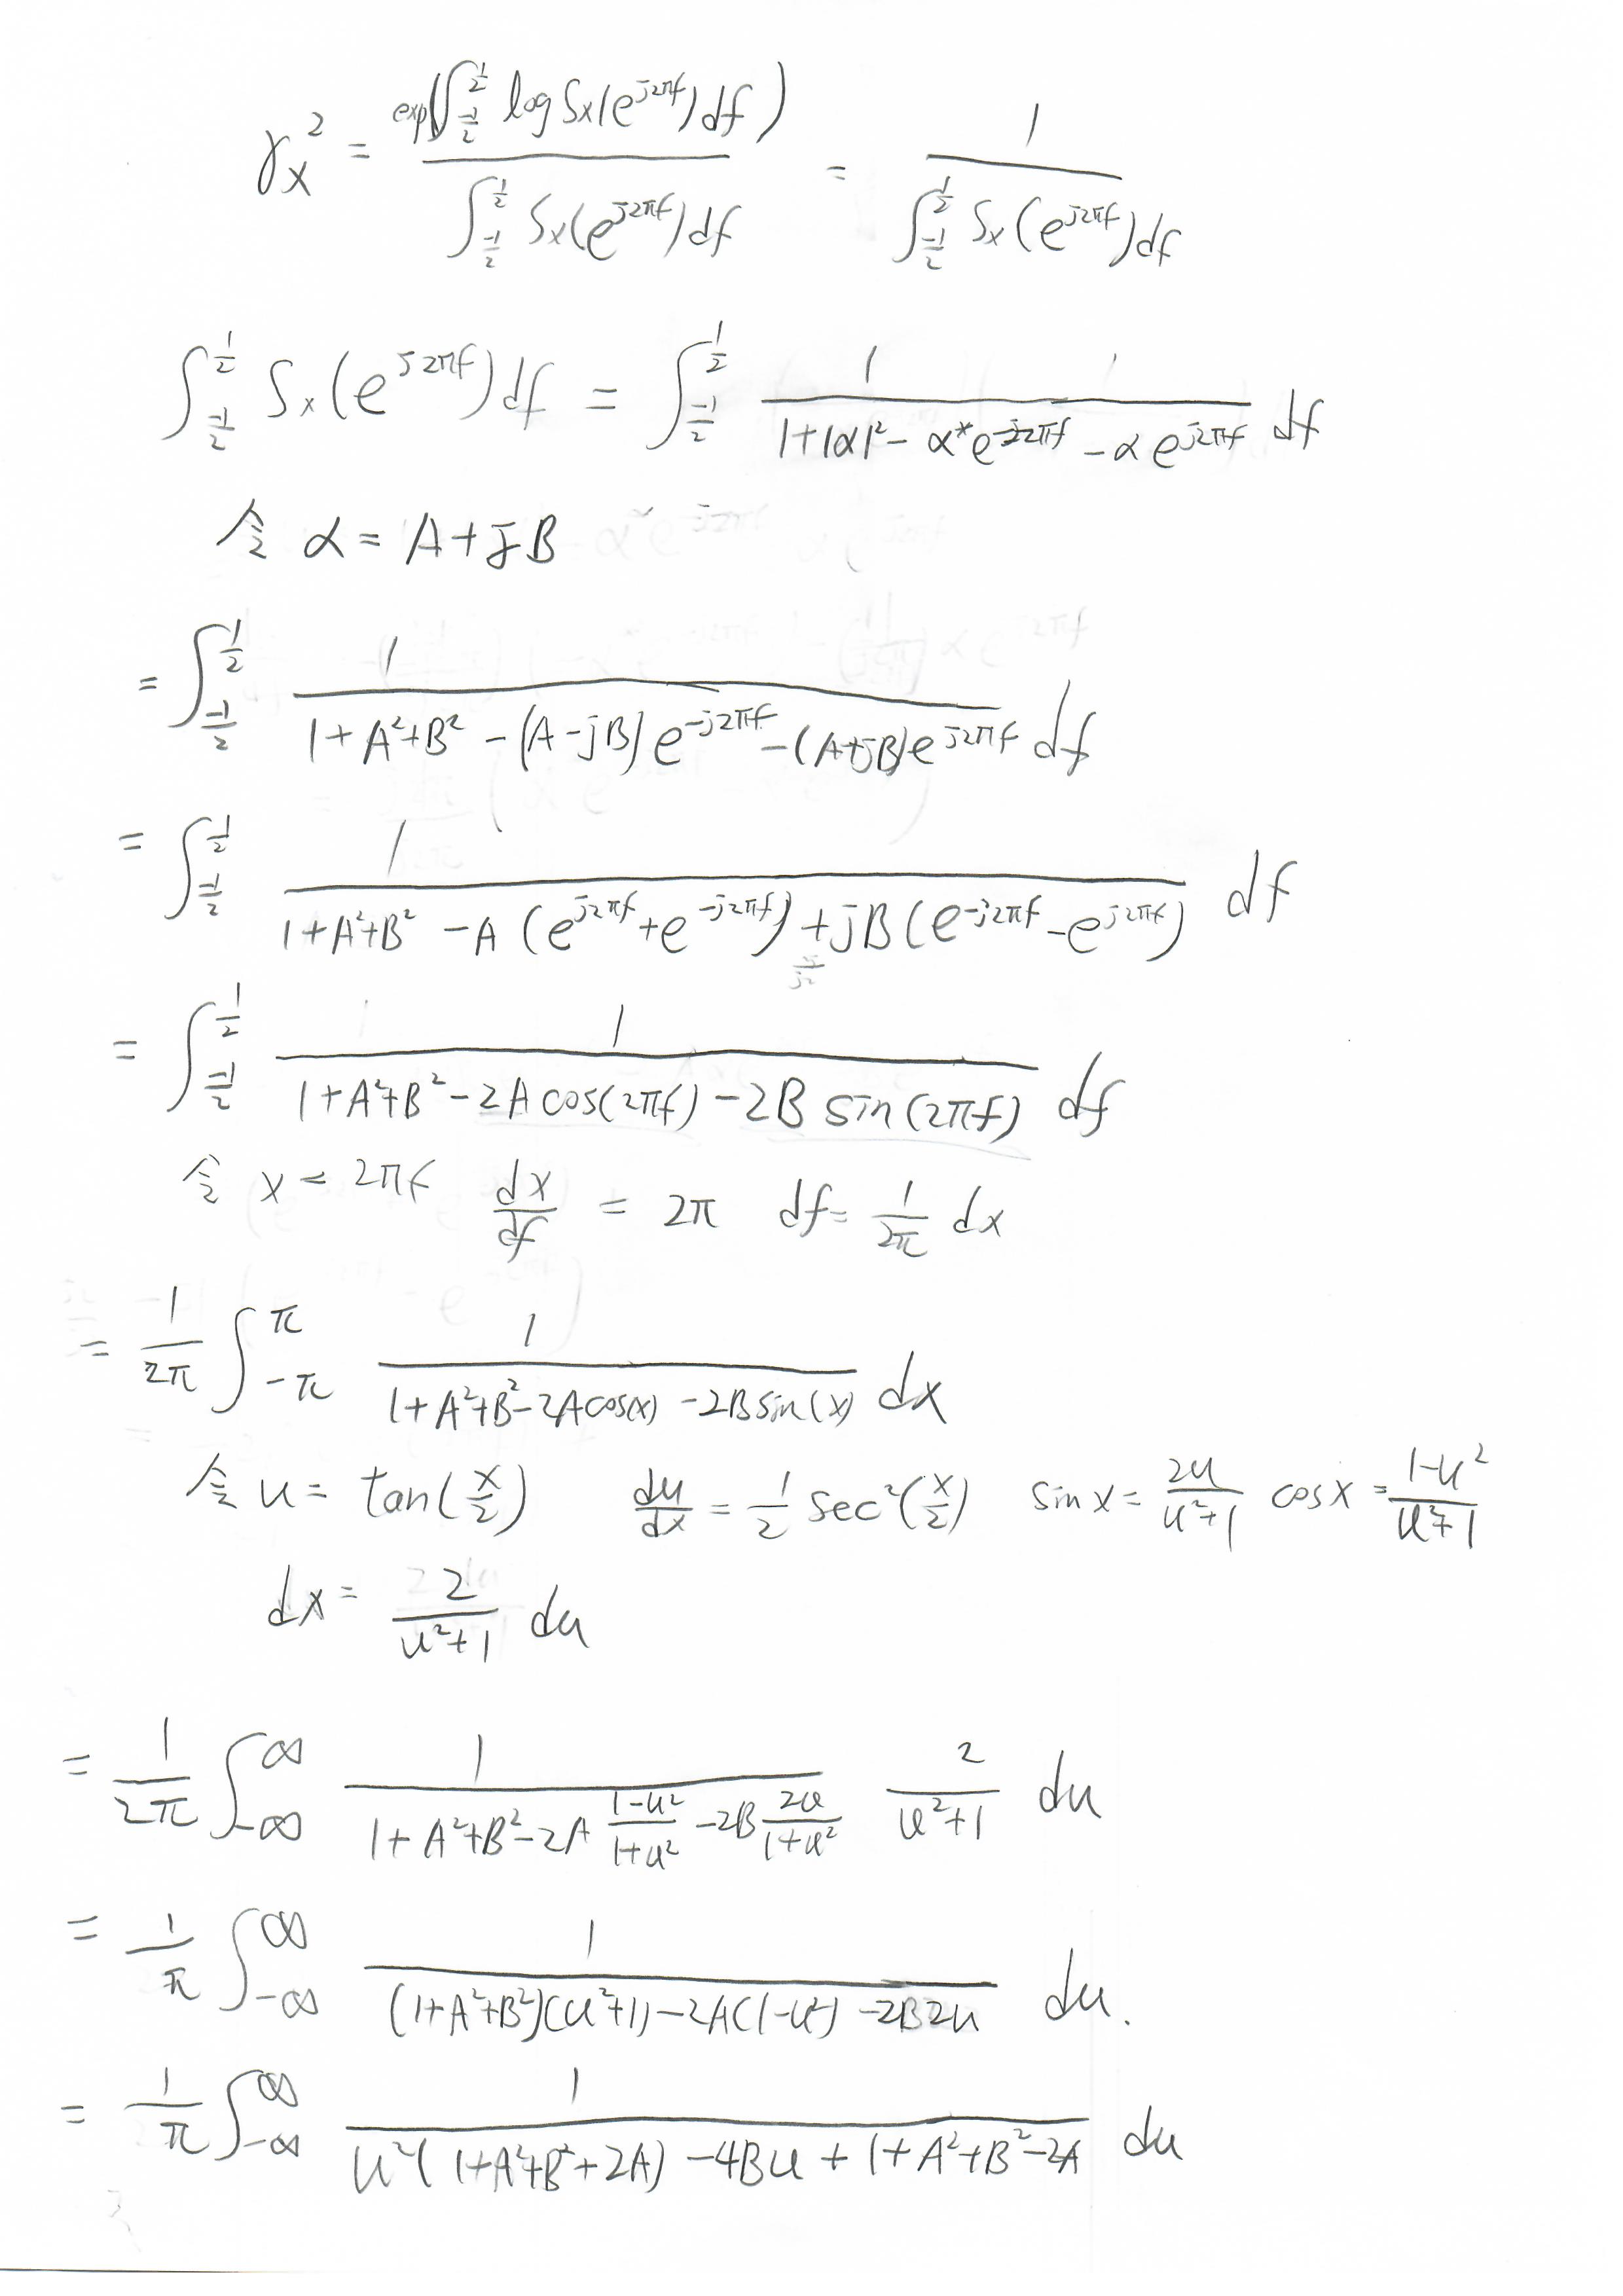 γ_x² = exp(∫_{-1/2}^{1/2} log S_x(e^{j2πf}) df) / ∫_{-1/2}^{1/2} S_x(e^{j2πf}) df = 1 / ∫_{-1/2}^{1/2} S_x(e^{j2πf}) df
∫_{-1/2}^{1/2} S_x(e^{j2πf}) df = ∫_{-1/2}^{1/2} 1 / (1+|α|² - α* e^{-j2πf} - α e^{j2πf}) df
令 α = A + jB
= ∫_{-1/2}^{1/2} 1 / (1 + A² + B² - (A - jB) e^{-j2πf} - (A+jB) e^{j2πf}) df
= ∫_{-1/2}^{1/2} 1 / (1 + A² + B² - A (e^{j2πf} + e^{-j2πf}) + jB (e^{-j2πf} - e^{j2πf})) df
= ∫_{-1/2}^{1/2} 1 / (1 + A² + B² - 2A cos(2πf) - 2B sin(2πf)) df
令 x = 2πf dx/df = 2π df = 1/2π dx
= 1/2π ∫_{-π}^{π} 1 / (1 + A² + B² - 2A cos(x) - 2B sin(x)) dx
令 u = tan(x/2) du/dx = 1/2 sec²(x/2) sin x = 2u/(u²+1) cos x = (1-u²)/(u²+1)
dx = 2/(u²+1) du
= 1/2π ∫_{-∞}^{∞} 1 / (1 + A² + B² - 2A (1-u²)/(1+u²) - 2B 2u/(1+u²)) 2/(u²+1) du
= 1/π ∫_{-∞}^{∞} 1 / ((1+A²+B²)(u²+1) - 2A(1-u²) - 2B2u) du.
= 1/π ∫_{-∞}^{∞} 1 / (u²(1+A²+B²+2A) - 4Bu + 1 + A² + B² - 2A) du